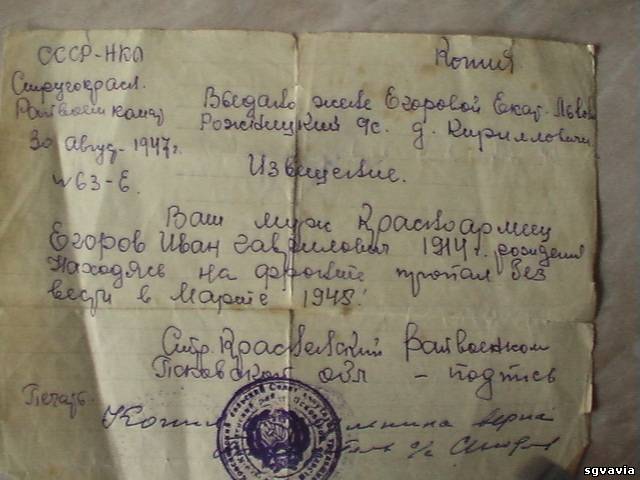 СССР-НКО
Копия
Стругокрасн.
Райвоенкомат
30 август. 1947г.
№63-Е.
Выдано жене Егоровой Екат. Львов
Рожницкий с/с. д. Кирилловичи
Извещение.
Ваш муж Красноармеец
Егоров Иван Гаврилович 1914г. рождения
Находясь на фронте пропал без
вести в Марте 1945г.
Стр. Красненский Райвоенком
Псковской обл - подпись
Печать
Копия верна
с/с
sgvavia